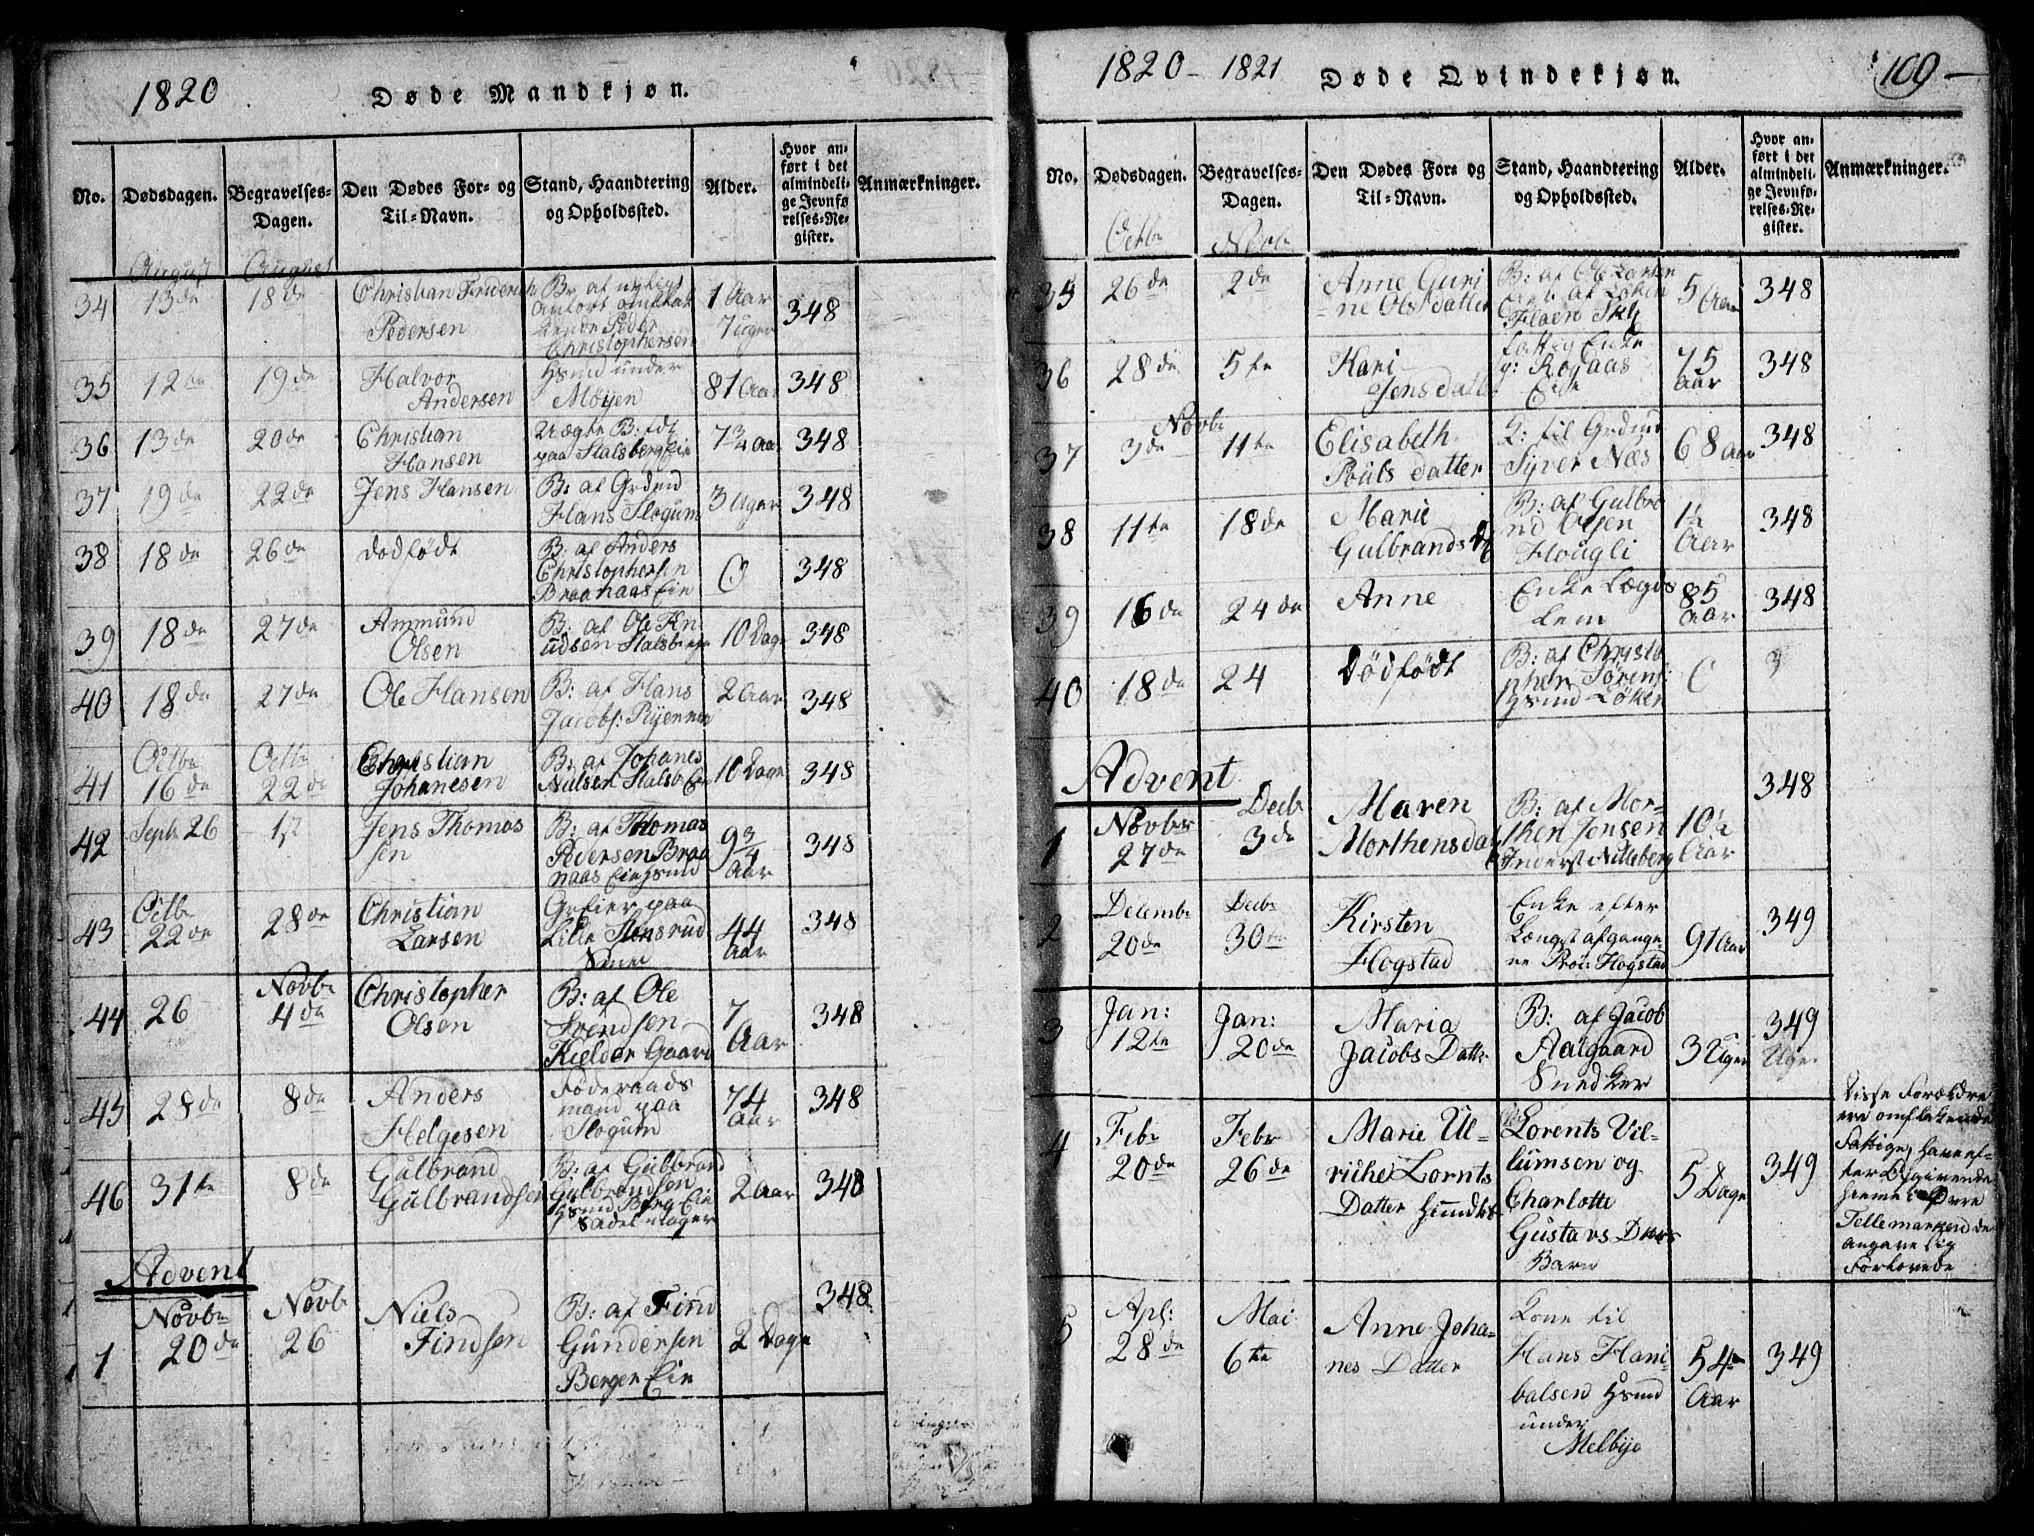 1820
Døde Mandkjøn.
No.
Dødsdagen.
Begravelses-
Dagen.
Den Dødes For- og
Til-Navn.
Stand, Haandtering
og Opholdssted.
Alder.
Hvor an-
ført i det
almindeli-
ge Jevnfø-
relses-Re-
gister.
Anmærkninger.
August August
34 13de 18de Christian Friderich Pedersen
Christophersen
1 Aar
7 uger
348
35 12te 19de Halvor
Andersen
Hsmd under
Møyen
81 Aar 348
36 13de 20de Christian
Hansen
Uægte B: fdt
paa Stalsberg Eie
7 3/4 Aar 348
37 19de 22de Jens Hansen
B: af Grdmd
Hans Slogum
3 Uger 348
38 18de 26de dödfödt
B: af Anders
Christophersen
Braanaas Eie
0 348
39 18de 27de Ammund
Olsen
B: af Ole Kn
udsen Stalsberge
10 Dage 348
40 18de 27de Ole Hansen
B: af Hans
Jacobs: Ryennen
2 Aar 348
41 Octbr 16de Octbr 22de
Christian
Johanesen
B: af Johanes
Nielsen Stalsb Eie
10 Dage 348
42 Septr 26 1st
Jens Thomas
sen
B: af Thomas
Pedersen Braa
naas Eie Hsmd
9 3/4
Aar
348
43 Octbr
22de 28de
Christian
Larsen
Grfier paa
Lille Stensrud
Smed
44
Aar
348
44 26 Novbr
4de
Christopher
Olsen
B: af Ole
Svendsen
Kielder Gaard
7
Aar
348
45 28de 8de
Anders
Helgesen
Föderaads
mand paa
Slogum
74
Aar
348
46 31te 8de
Gulbrand
Gulbrandsen
B: af Gulbrand
Gulbrandsen
Hsmd Berg Eie
Sadelmager
2 Aar 348
Advent
1 Novbr
20de
Novb
26
Niels
Findsen
B: af Find
Gundersen
Berger Eie
2 Dage
348
1820 – 1821
Døde Qvindekjøn.
109
No.
Dødsdagen.
Begravelses-
Dagen.
Den Dødes For- og
Til-Navn.
Stand, Haandtering
og Opholdssted.
Alder.
Hvor an-
ført i det
almindeli-
ge Jevnfø-
relses-Re-
gister.
Anmærkninger.
Octbr Novbr
35 26de 2de
Anne Guri
ne Ols datter
B: af Ole Larsen
5 Aar 348
36 28de 5te
Kari
Jens datter
fattig Enke
Rogaas
Eie
75
Aar
348
37 Novbr
3de 11te
Elisabeth
Pouls datter
K: til Grdmd
Syver Næs
68 Aar 348
38 11te 18de
Marie
Gulbrands D
B: af Gulbra
nd Olsen
Hougli
1 1/2
Aar
348
39 16de 24de
Anne
Enke Lægds
Lem
85
Aar
348
40 18de 24
Dödfödt
B: af Christo
pher Sörens:
Hsmd Löken
0 3
Advent
1 Novbr
27de
Decb
3de
Maren
Morthensdat
B: af Mor-
ten Jensen
Inderst Nitteberg
10 1/2
Aar
348
2 Decembr
20de
Decbr
30te
Kirsten
Hogstad
Enke efter
Længst afgange
ne Pro: Hogstad
91 Aar 349
3 Jan:
12te
Jan:
20de
Maria
Jacobs Datter
B: af Jacob
Aalgaard
Snedker
3 Uger
349
Uge.
4 Febr
20de
Febr
26de
Marie Ul-
riche Lornts
Datter
Lorents Vil-
lumsen og
Charlotte
Gustavs Daters
Barn
5 Dage
349
Disse Forældre
ere omflakende
Fattige, have ef-
ter Opgivende
hieme i Övre
Tellemarken de
angave sig
Forlovede
5 Apl:
28de
Mai
6te
Anne Joha-
nes Datter
Kone til
Hans Hani-
balsen Hsmd
under
Melbye
54
Aar
349